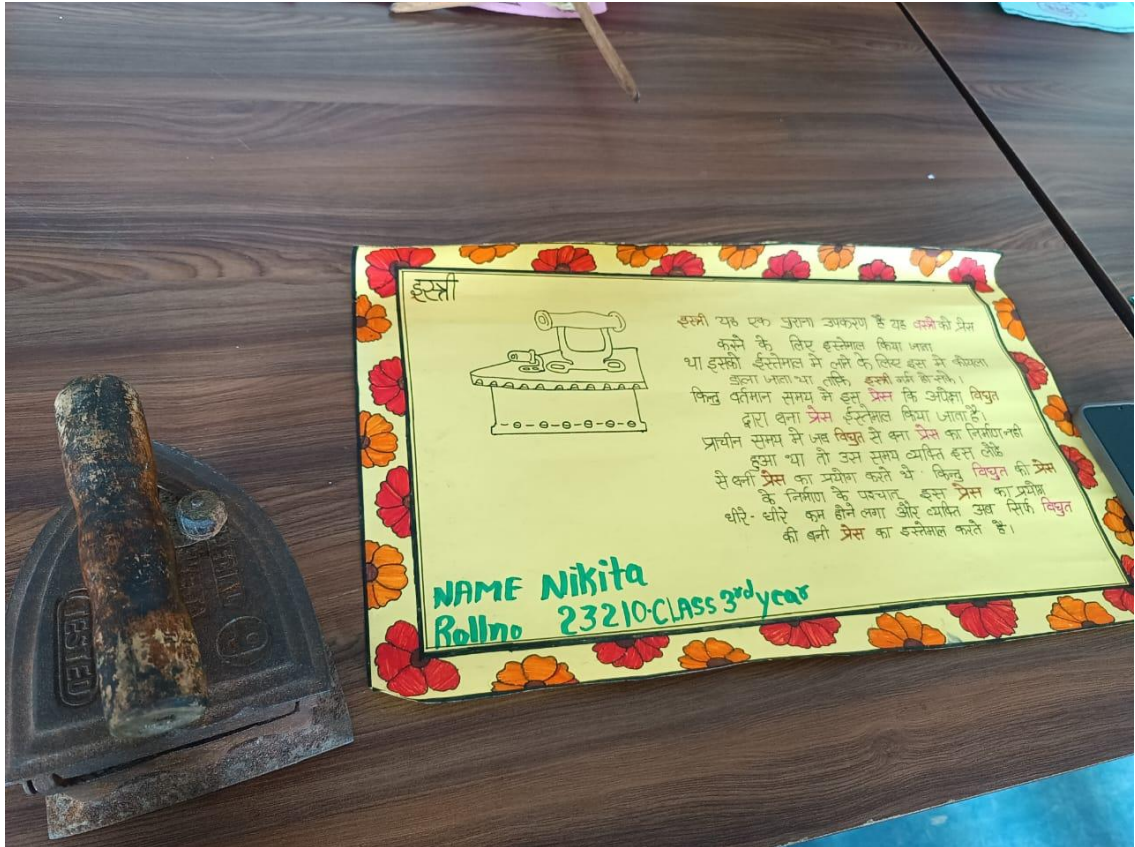 इस्त्री
इस्त्री यह एक पुराना उपकरण है यह वस्त्रो को प्रेस
करने के लिए इस्तेमाल किया जाता
था इसको ईस्तेमाल मे लाने के लिए इस मे कोयला
डाला जाता था ताकि इस्त्री गर्म हो सके।
किन्तु वर्तमान समय मे इस प्रेस कि अपेक्षा विद्युत
द्वारा बना प्रेस ईस्तेमाल किया जाता है।
प्राचीन समय मे जब विद्युत से बना प्रेस का निर्माण नही
हुआ था तो उस समय व्यक्ति इस लोहे
से बनी प्रेस का प्रयोग करते थे किन्तु विद्युत की प्रेस
के निर्माण के पश्चात् इस प्रेस का प्रयोग
धीरे-धीरे कम होने लगा और व्यक्ति अब सिर्फ विद्युत
की बनी प्रेस का इस्तेमाल करते है।
NAME Nikita
Rollno 23210-CLASS 3rd year
9
TESTED